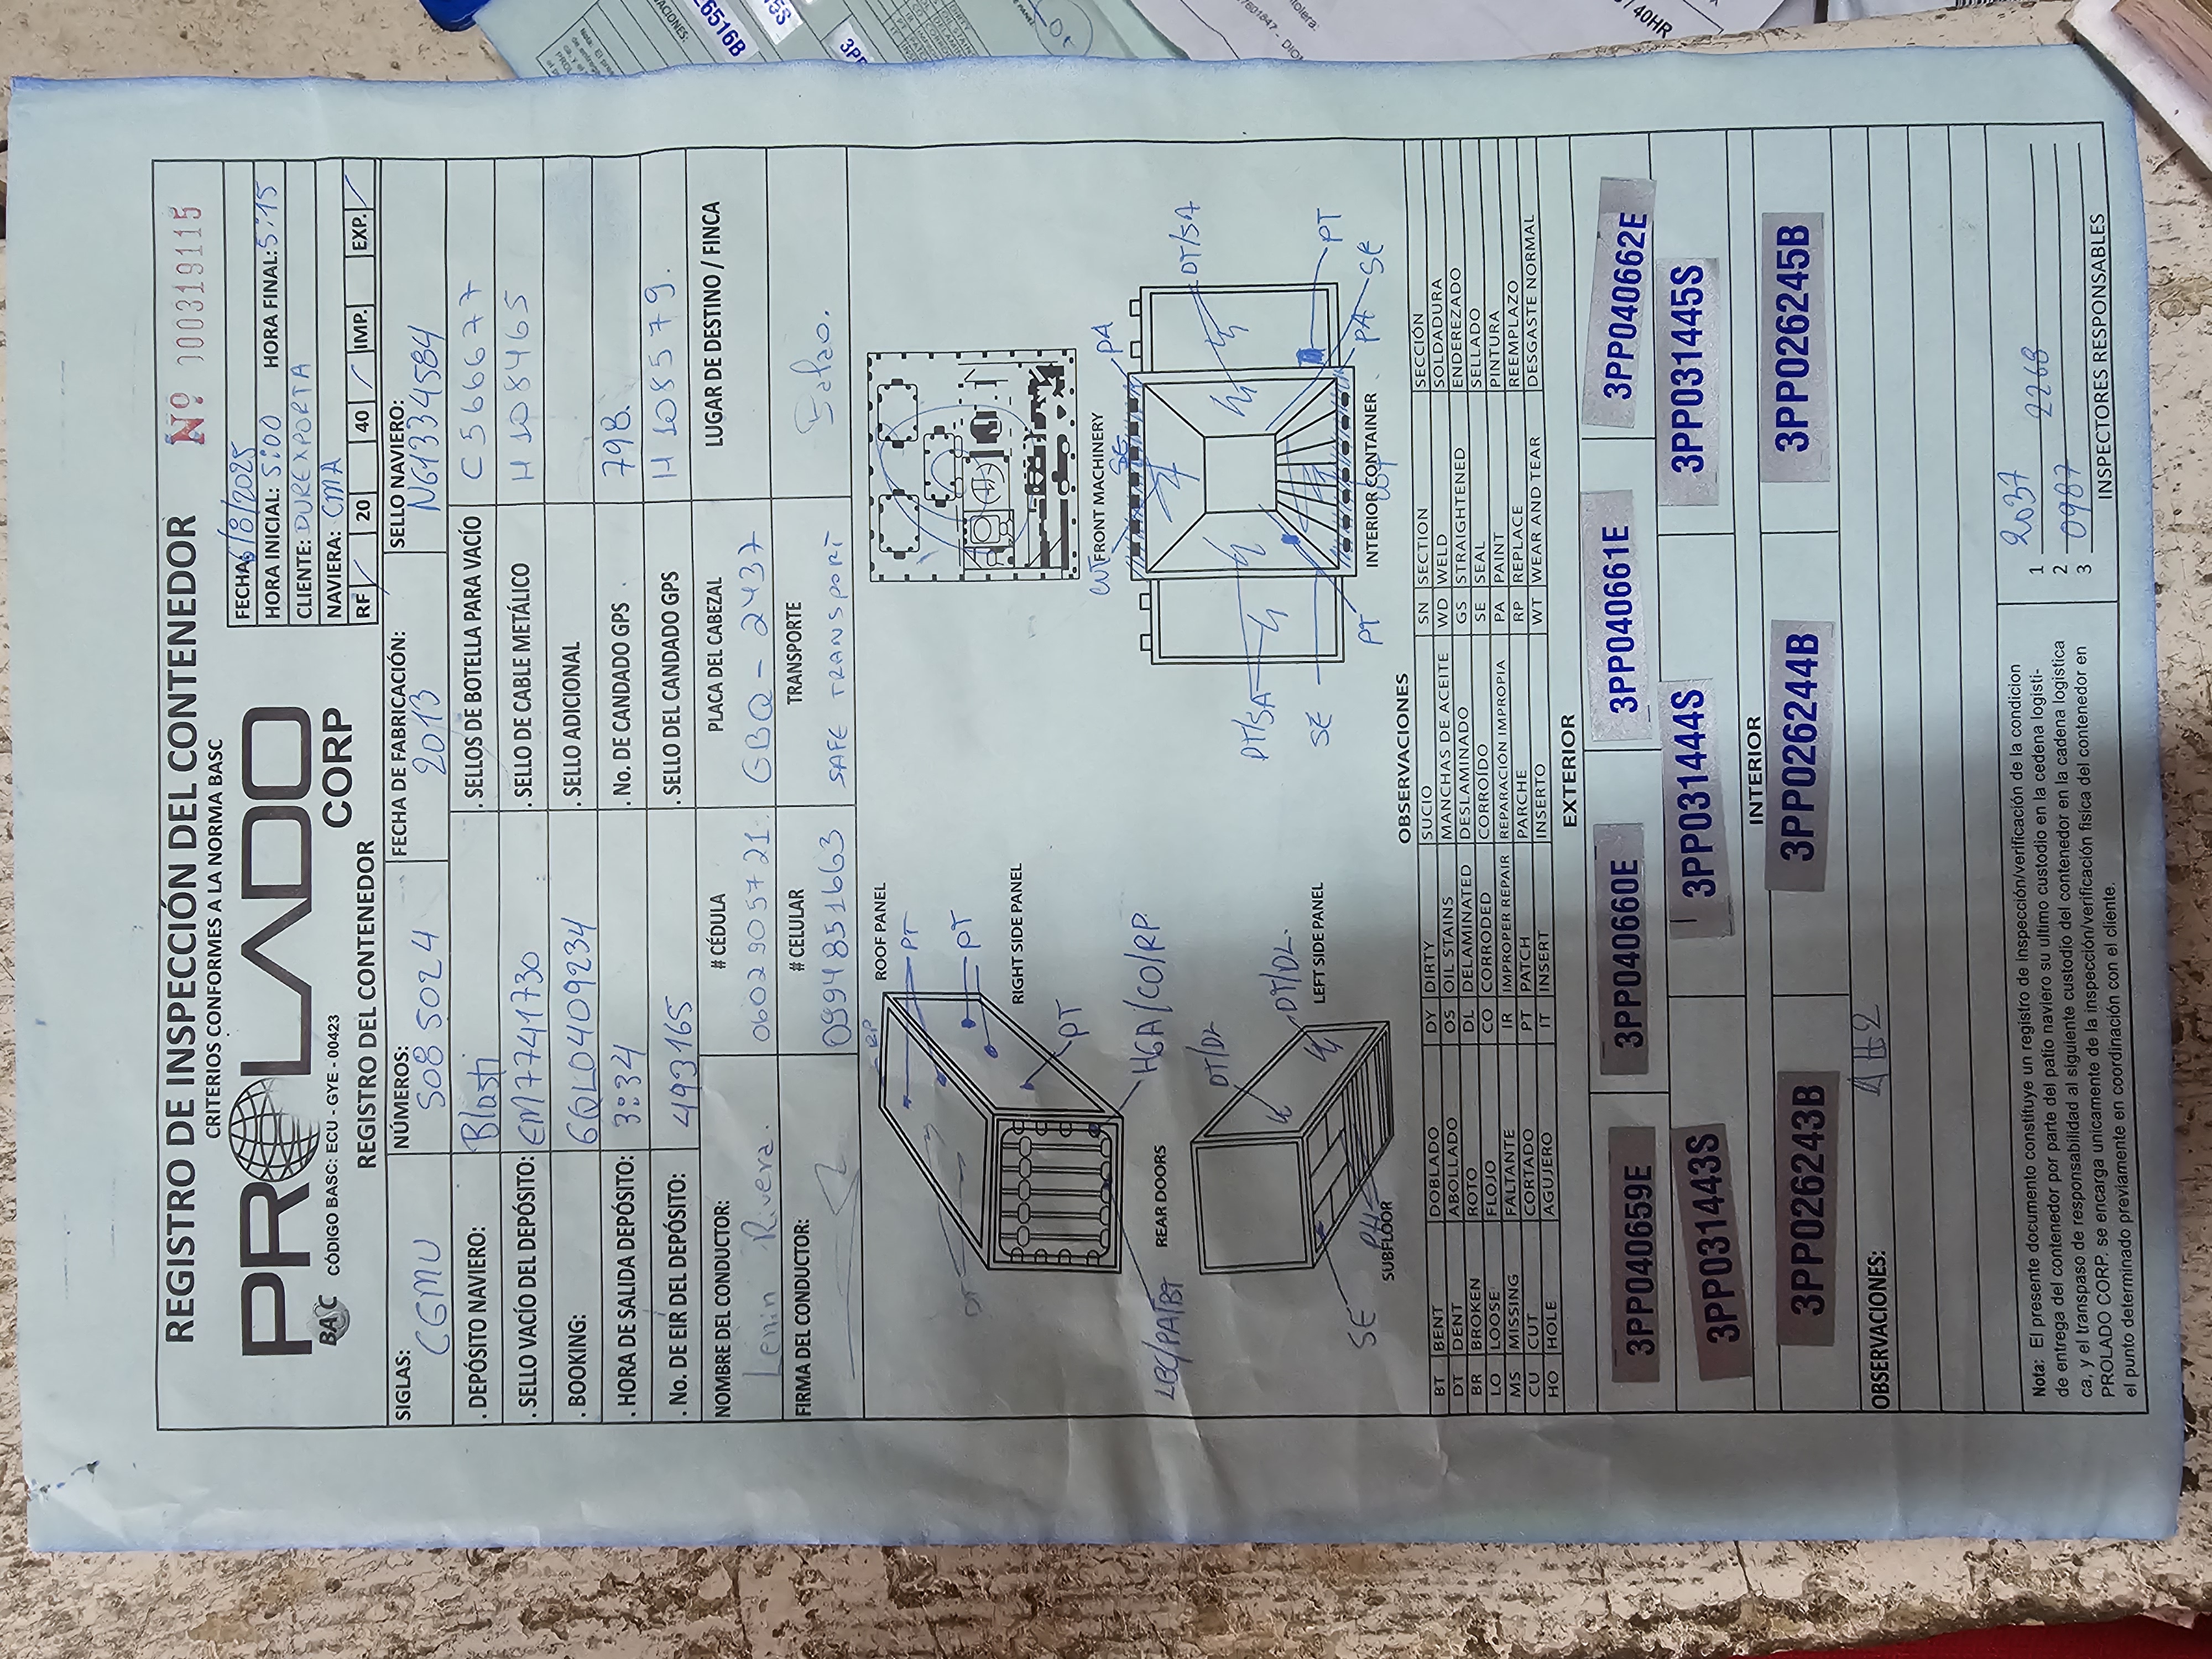 REGISTRO DE INSPECCIÓN DEL CONTENEDOR
Nº 000319115
CRITERIOS CONFORMES A LA NORMA BASC
PROLADO
CORP
BASC CÓDIGO BASC: ECU - GYE - 00423
FECHA: 6/8/2025
HORA INICIAL: 5:00 HORA FINAL: 5:15
CLIENTE: DUREXPORTA
NAVIERA: CMA
RF / 20 40 / IMP. EXP. /
REGISTRO DEL CONTENEDOR
SIGLAS: NÚMEROS: FECHA DE FABRICACIÓN: SELLO NAVIERO:
CGMU 5085024 2013 N61334584
. DEPÓSITO NAVIERO: Blasti . SELLOS DE BOTELLA PARA VACÍO C566677
. SELLO VACÍO DEL DEPÓSITO: EM7741730 . SELLO DE CABLE METÁLICO H108465
. BOOKING: GQL0409234 . SELLO ADICIONAL
. HORA DE SALIDA DEPÓSITO: 3:34 . No. DE CANDADO GPS 798.
. No. DE EIR DEL DEPÓSITO: 493165 . SELLO DEL CANDADO GPS H108579.
NOMBRE DEL CONDUCTOR: # CÉDULA PLACA DEL CABEZAL LUGAR DE DESTINO / FINCA
Lenin Rivera. 0602905721. GBQ - 2437
FIRMA DEL CONDUCTOR: # CELULAR TRANSPORTE
0994851663 SAFE TRANSPORT Balao.
RP
ROOF PANEL
PT
DT
PT
RIGHT SIDE PANEL
PT
LBC/PA/BT REAR DOORS HGA/CO/RP
WT FRONT MACHINERY
SE PA
DT/DL
DT/SA
DT/SA
DT/DL.
LEFT SIDE PANEL
SE
PT
SE PH
SUBFLOOR
PT INTERIOR CONTAINER PA SE
WT
OBSERVACIONES
BT BENT DOBLADO DY DIRTY SUCIO SN SECTION SECCIÓN
DT DENT ABOLLADO OS OIL STAINS MANCHAS DE ACEITE WD WELD SOLDADURA
BR BROKEN ROTO DL DELAMINATED DESLAMINADO GS STRAIGHTENED ENDEREZADO
LO LOOSE FLOJO CO CORRODED CORROÍDO SE SEAL SELLADO
MS MISSING FALTANTE IR IMPROPER REPAIR REPARACIÓN IMPROPIA PA PAINT PINTURA
CU CUT CORTADO PT PATCH PARCHE RP REPLACE REEMPLAZO
HO HOLE AGUJERO IT INSERT INSERTO WT WEAR AND TEAR DESGASTE NORMAL
EXTERIOR
3PP040659E 3PP040660E 3PP040661E 3PP040662E
3PP031443S 3PP031444S 3PP031445S
INTERIOR
3PP026243B 3PP026244B 3PP026245B
OBSERVACIONES:
Nota: El presente documento constituye un registro de inspección/verificación de la condicion
de entrega del contenedor por parte del patio naviero su ultimo custodio en la cedena logisti-
ca, y el transpaso de responsabilidad al siguiente custodio del contenedor en la cadena logistica
PROLADO CORP. se encarga unicamente de la inspección/verificación fisica del contenedor en
el punto determinado previamente en coordinación con el cliente.
1 2037
2 2268
3 0987
INSPECTORES RESPONSABLES